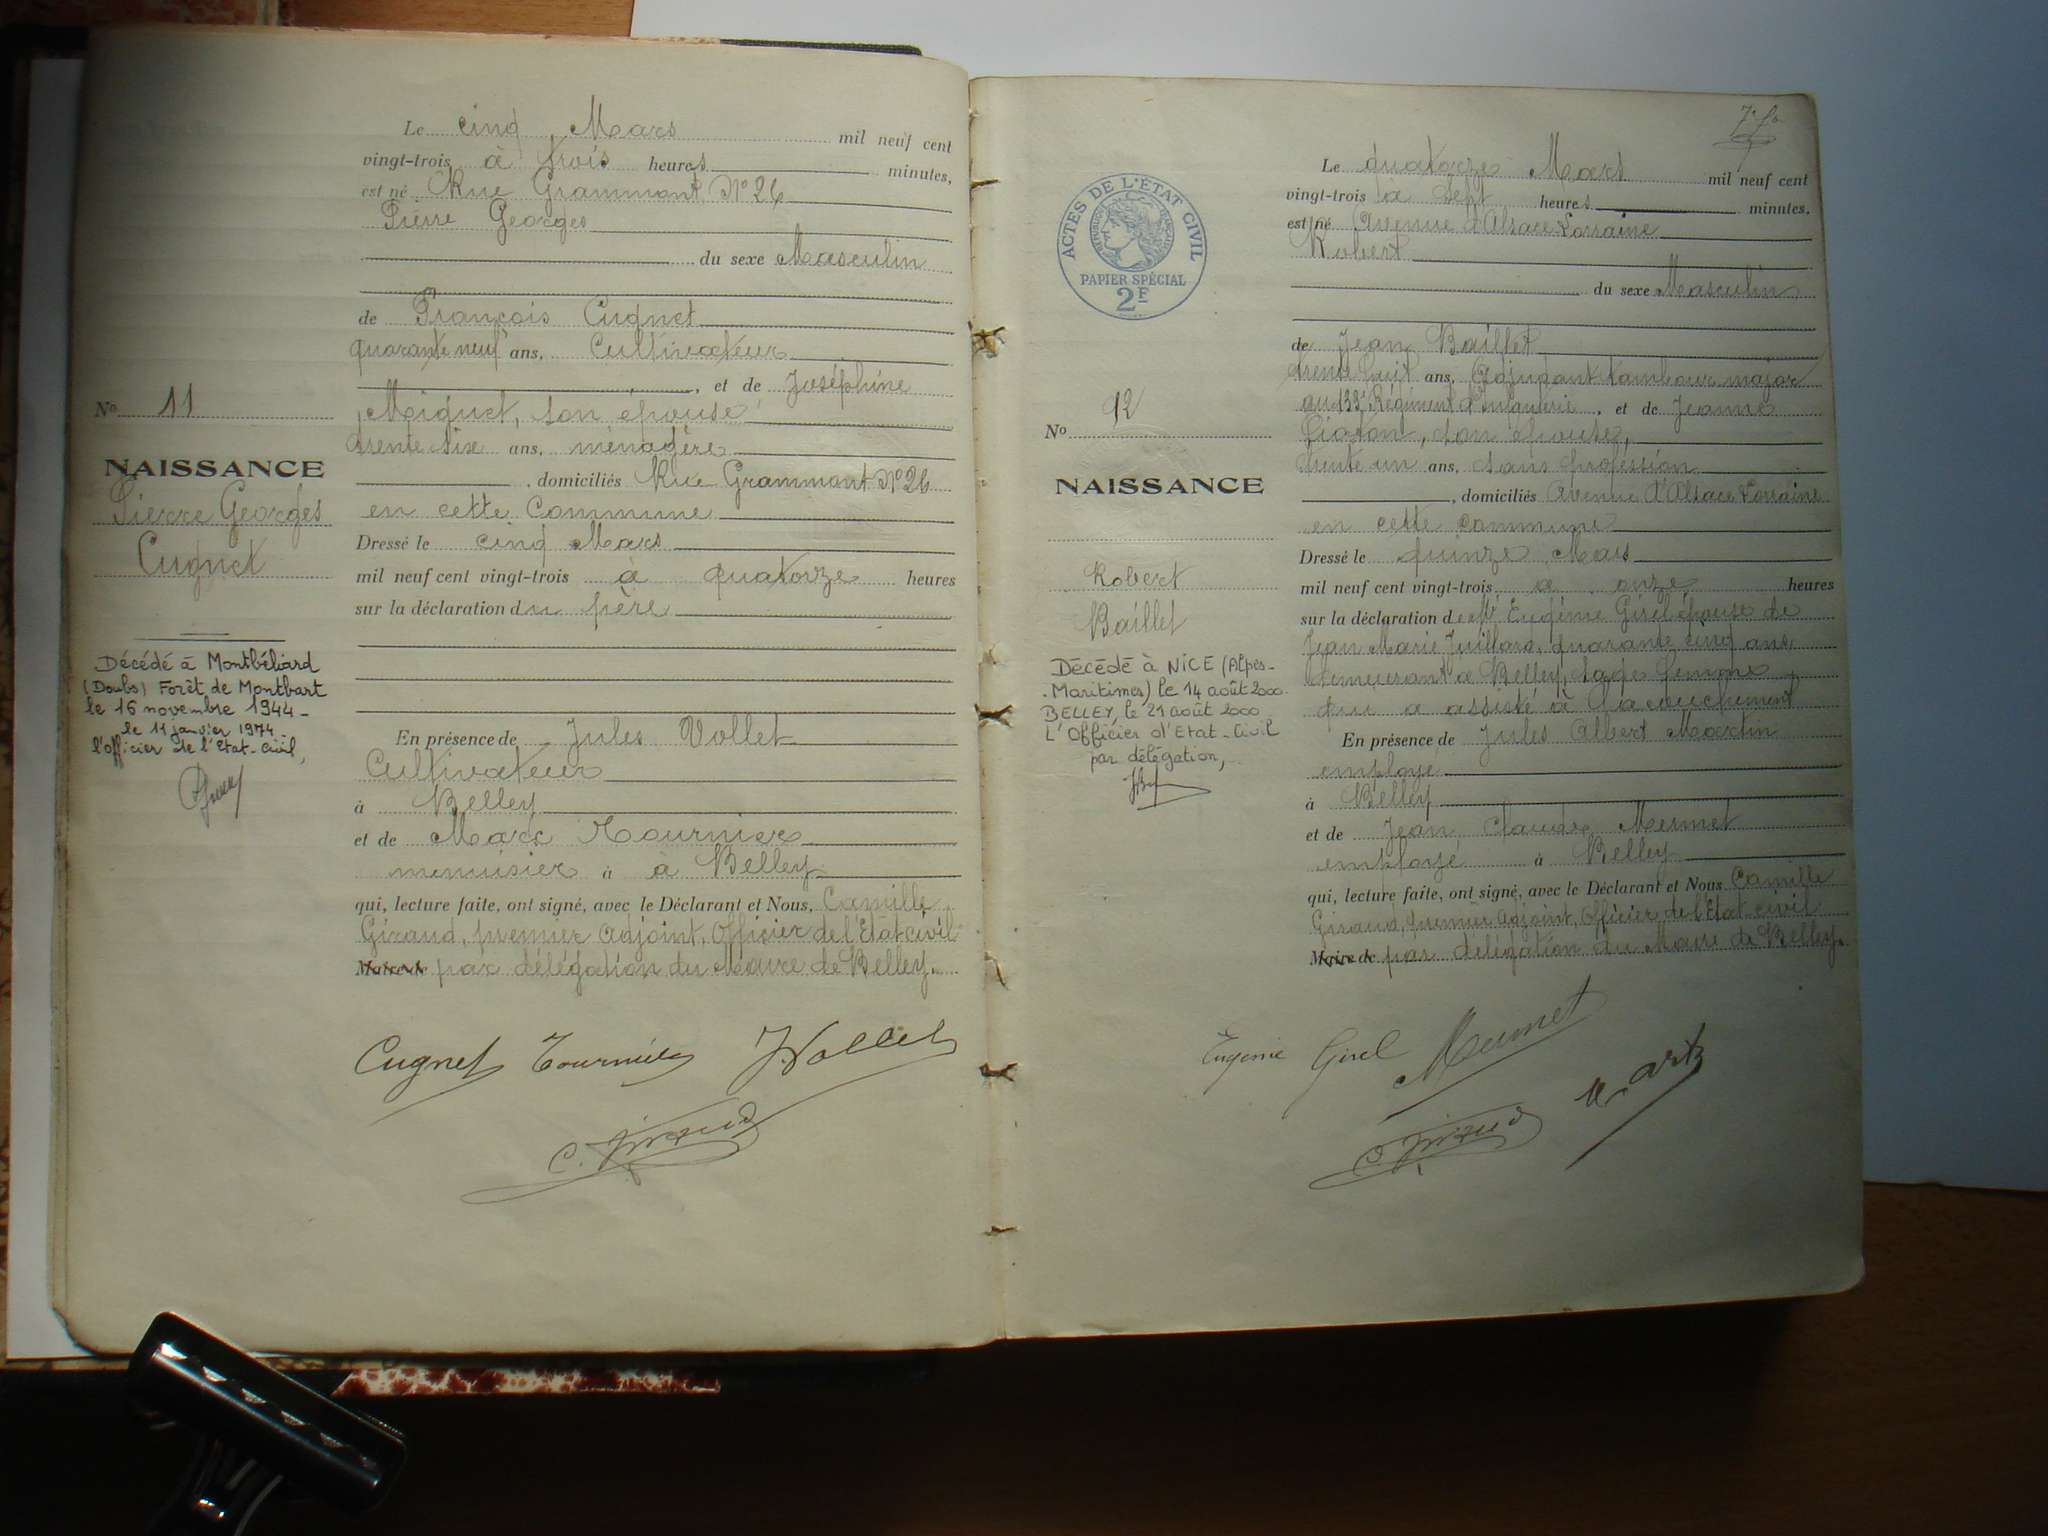 Le cinq Mars mil neuf cent
vingt-trois à trois heures minutes,
est né Rue Grammont N° 26
Pierre Georges
du sexe Masculin
de François Cugnet
quarante neuf ans, Cultivateur
, et de Joséphine
Miguet, son épouse
trente six ans, ménagère
, domiciliés Rue Grammont N° 26
en cette Commune
Dressé le cinq Mars
mil neuf cent vingt-trois à quatorze heures
sur la déclaration du père
En présence de Jules Vollet
Cultivateur
à Belley
et de Marc Tournier
menuisier à à Belley
qui, lecture faite, ont signé, avec le Déclarant et Nous, Camille
Giraud, premier Adjoint, Officier de l'État civil
Maire de par délégation du Maire de Belley.
Cugnet Tournier J. Vollet
C. Giraud
No 11
NAISSANCE
Pierre Georges
Cugnet
Décédé à Montbéliard
(Doubs) Forêt de Montbart
le 16 novembre 1944 -
le 11 janvier 1974
l'officier de l'Etat-Civil,
7e fo
Le quatorze Mars mil neuf cent
vingt-trois à sept heures minutes,
est né Avenue d'Alsace Lorraine
Robert
du sexe Masculin
de Jean Baillet
trente huit ans, Adjudant tambour major
au 133e Régiment d'Infanterie, et de Jeanne
son épouse,
trente un ans, sans profession
, domiciliés Avenue d'Alsace Lorraine
en cette commune
Dressé le quinze Mars
mil neuf cent vingt-trois à onze heures
sur la déclaration de Me Eugénie Girel épouse de
Jean Marie Juillard, quarante cinq ans
demeurant à Belley, Sage femme
qui a assisté à l'accouchement
En présence de Jules Albert Martin
employé
à Belley
et de Jean Claude Mermet
employé à Belley
qui, lecture faite, ont signé, avec le Déclarant et Nous Camille
Giraud, premier Adjoint, Officier de l'État civil
Maire de par délégation du Maire de Belley.
Eugénie Girel Mermet
C. Giraud Martin
ACTES DE L'ÉTAT CIVIL
RÉPUBLIQUE FRANÇAISE
PAPIER SPÉCIAL
2F
No 12
NAISSANCE
Robert
Baillet
Décédé à NICE (Alpes-
Maritimes) le 14 août 2000.
BELLEY, le 21 août 2000
L'Officier d'Etat-Civil
par délégation,